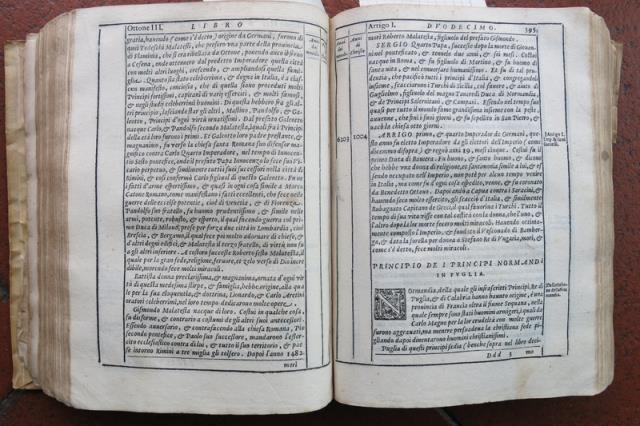 Ottone III.
LIBRO
Anni del mondo
Anni di Christo
gratia, hauendo (come s'è detto) origine da Germani, furono di
quei Tedeschi Malatesti, che presero una parte della prouincia,
& Flaminia, che si era ribellata da Ottone, ponendo anco il freno
a Cesena, onde ottenendo dal predetto Imperadore quella città
con molti altri luoghi, crescendo, & ampliandosi quella famiglia.
Quanto sia stato celeberrimo, & degna in Italia, è da
manifesto, conciosia, che di quella sono proceduti molti
Principi fortissimi, capitani di varij eserciti, & molti famosi,
& negli studij celeberrimi huomini. Di questa hebbero fra gli altri
principio, lasciando star gli altri, Malatino, Pandolfo, & Galeotto,
Principi d'ogni virtù ornatissimi. Dal Galeotto
nacque Carlo, & Pandolfo secondo Malatesta, quali fra i Principi
della età loro furono i primi. Et Galeotto loro padre prestante, &
magnanimo, fu verso la chiesa santa Romana suo difensor
contra Carlo Quarto Imperadore, nel tempo di Innocentio
Sesto pontefice, onde il prefato Papa Innocenzo lo fece suo Vicario
perpetuo, & similmente tutti i suoi successori nella città di
Rimini, & così confermò Carlo figliuol di questo Galeotto. Fu in
fatti d'arme espertissimo, & quasi in ogni cosa simile a Marco
Catone Romano, come manifestano i fatti eccellenti, che fece nelle
guerre delle città eccelse di Venetia, & di Fiorenza.
Pandolfo suo fratello, fu huomo prudentissimo, & simile nelle
armi, potente, robusto, & esperto, il qual facendo guerra col primo
Duca di Milano, prese per forza due città in Lombardia, cioè
Brescia, & Bergamo, il quale fece per molto adornar di chiese, &
di altri degni edificij, & Malatesta il terzo fratello, di virtù non fu
a gli altri inferiore. A costoro successe Roberto sesto Malatesta, il
quale per la gran fede, religione, feruore, et zelo verso di Dio immortale,
morendo fece molti miracoli.
Battista donna preclarissima, & magnanima, ornata d'ogni virtù
di quella medesima stirpe, & famiglia, hebbe origine, alla quale
per la sua eloquentia, & dottrina, Lionardo, & Carlo Aretini
oratori celeberrimi, ne i loro tempo dedicarono molte opere.
Gismondo Malatesta nacque di loro. Costui in qualche cosa,
fu dissimile, & contrario a costumi de gli altri suoi antecessori.
Essendo auuersario, & contrafacendo alla chiesa Romana, Pio
secondo pontefice, & Paolo suo successore, mandarono l'esercito
ecclesiastico contra di lui, & tutto il suo territorio, & paese
intorno Rimini a tre miglia gli tolsero. Dapoi l'anno 1482.
morì
Arrigo I.
DVODECIMO.
395
Anni del mondo
Anni di Christo
morì Roberto Malatesta, figliuolo del prefato Gismondo.
SERGIO Quarto Papa, successo dopo la morte di Giouanni
nel pontificato, & tennelo due anni, & sei mesi. Costui
nacque in Roma, & fu figliuolo di Martino, & fu huomo di
santa vita, & nel conuersare humanissimo. Et fu di tal prudentia,
che pacificò tutti i principi d'Italia, & congregandosi
insieme, scacciarono i Turchi di Sicilia, col fauore, & aiuto di
Guglielmo, figliuolo del magno Tancredi Duca di Normandia, &
de Principi Salernitani, & Campani. Essendo nel tempo suo
quasi per tutto il mondo fame grandissima insieme con la peste.
auuenne, che finì i suoi giorni, & fu sepellito in san Pietro, &
vacò la chiesa otto giorni.
6203
1004
ARRIGO primo, & quarto Imperador de Germani, questo
anno fu eletto Imperadore da gli elettori dell'Imperio (come
dicemmo di sopra) & regnò anni 20, mesi cinque. Costui fu il
primo Duca di Bauiera. Fu huomo buono, & santo huomo, & dicono
che hebbe una donna di religione, & santimonia simile a lui, &
essendo occupato nell'Imperio, non potè per alcun tempo venire
in Italia, ma come fu in ogni cosa espedito, venne, & fu coronato
da Benedetto Ottauo. Dapoi andò a Capua contra i Saracini, &
hauendo seco molto esserciti, gli scacciò d'Italia, & similmente
Rubagauto Capitano de Greci, al qual fauorino i Turchi. Tutto il
tempo di sua vita visse con tal castità con la donna, che l'uno, &
l'altro dopo la lor morte fecero molti miracoli. Hauendo ottimamente
composto l'Imperio, & fondato il Vescouado di Bamberga,
& data la sorella per donna a Stefano Re di Vngaria, morì, &
morendo fece molti miracoli.
Arrigo I. Imp. & suoi fatti.
PRINCIPIO DE I PRINCIPI NORMANDI
IN PVGLIA.
NOrmandia, della quale gli infrascritti Principi, Re
di Puglia, & di Calabria hanno hauuto origine, è una
prouincia di Francia oltra il fiume Sequana, nella
quale sempre sono stati huomini armigeri, i quali da
Carlo Magno per la lor crudeltà con molte guerre
furono aggrauati, ma mentre persuadeua la christiana fede pigliando
dapoi diuentarono buonissimi christianissimi.
Puglia di questi principi sedia (benche supra nel libro deci-
Ddd 3
mo